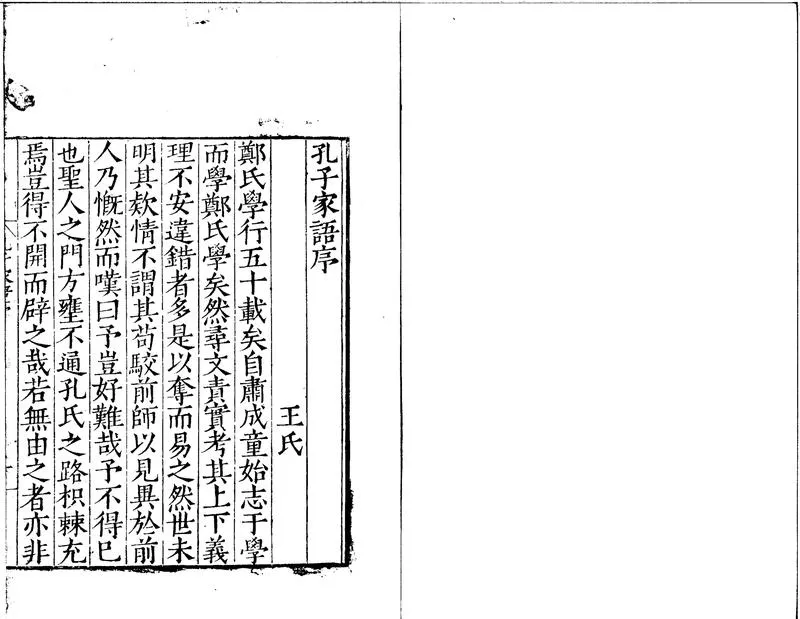 孔子家語序
王氏
鄭氏學行五十載矣自肅成童始志于學
而學鄭氏學矣然尋文責實考其上下義
理不安違錯者多是以奪而易之然世未
明其欵情不謂其茍駮前師以見異於前
人乃慨然而嘆曰予豈好難哉予不得已
也聖人之門方壅不通孔氏之路枳棘充
焉豈得不開而辟之哉若無由之者亦非